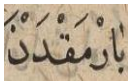 بَارْمَقْدَنْ